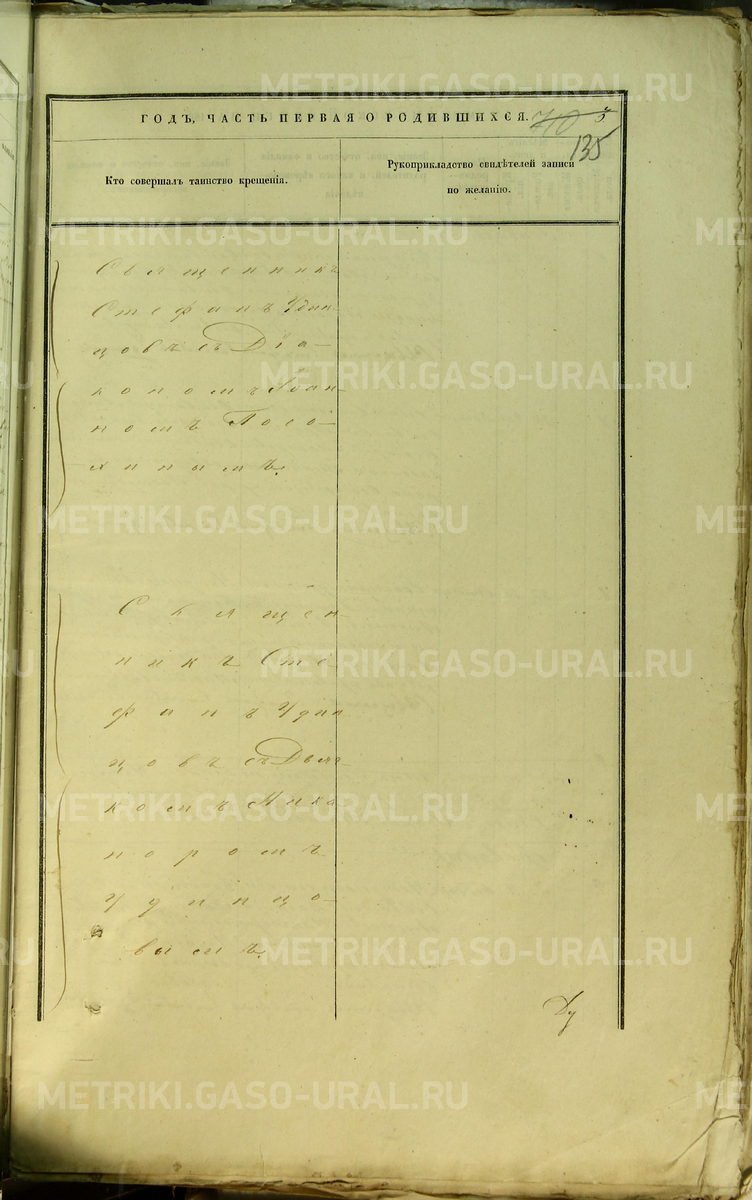 ГОДЪ, ЧАСТЬ ПЕРВАЯ О РОДИВШИХСЯ.
135
Кто совершалъ таинство крещенія.
Рукоприкладство свидѣтелей записи
по желанію.
Священникъ
Стефанъ Удин-
цовъ съ Діа-
кономъ Іоан-
номъ Посо-
хинымъ.
Священ-
никъ Сте-
фанъ Удин
цовъ съ Дьяч-
комъ Ника-
норомъ
Удинцо-
вымъ.
METRIKI.GASO-URAL.RU